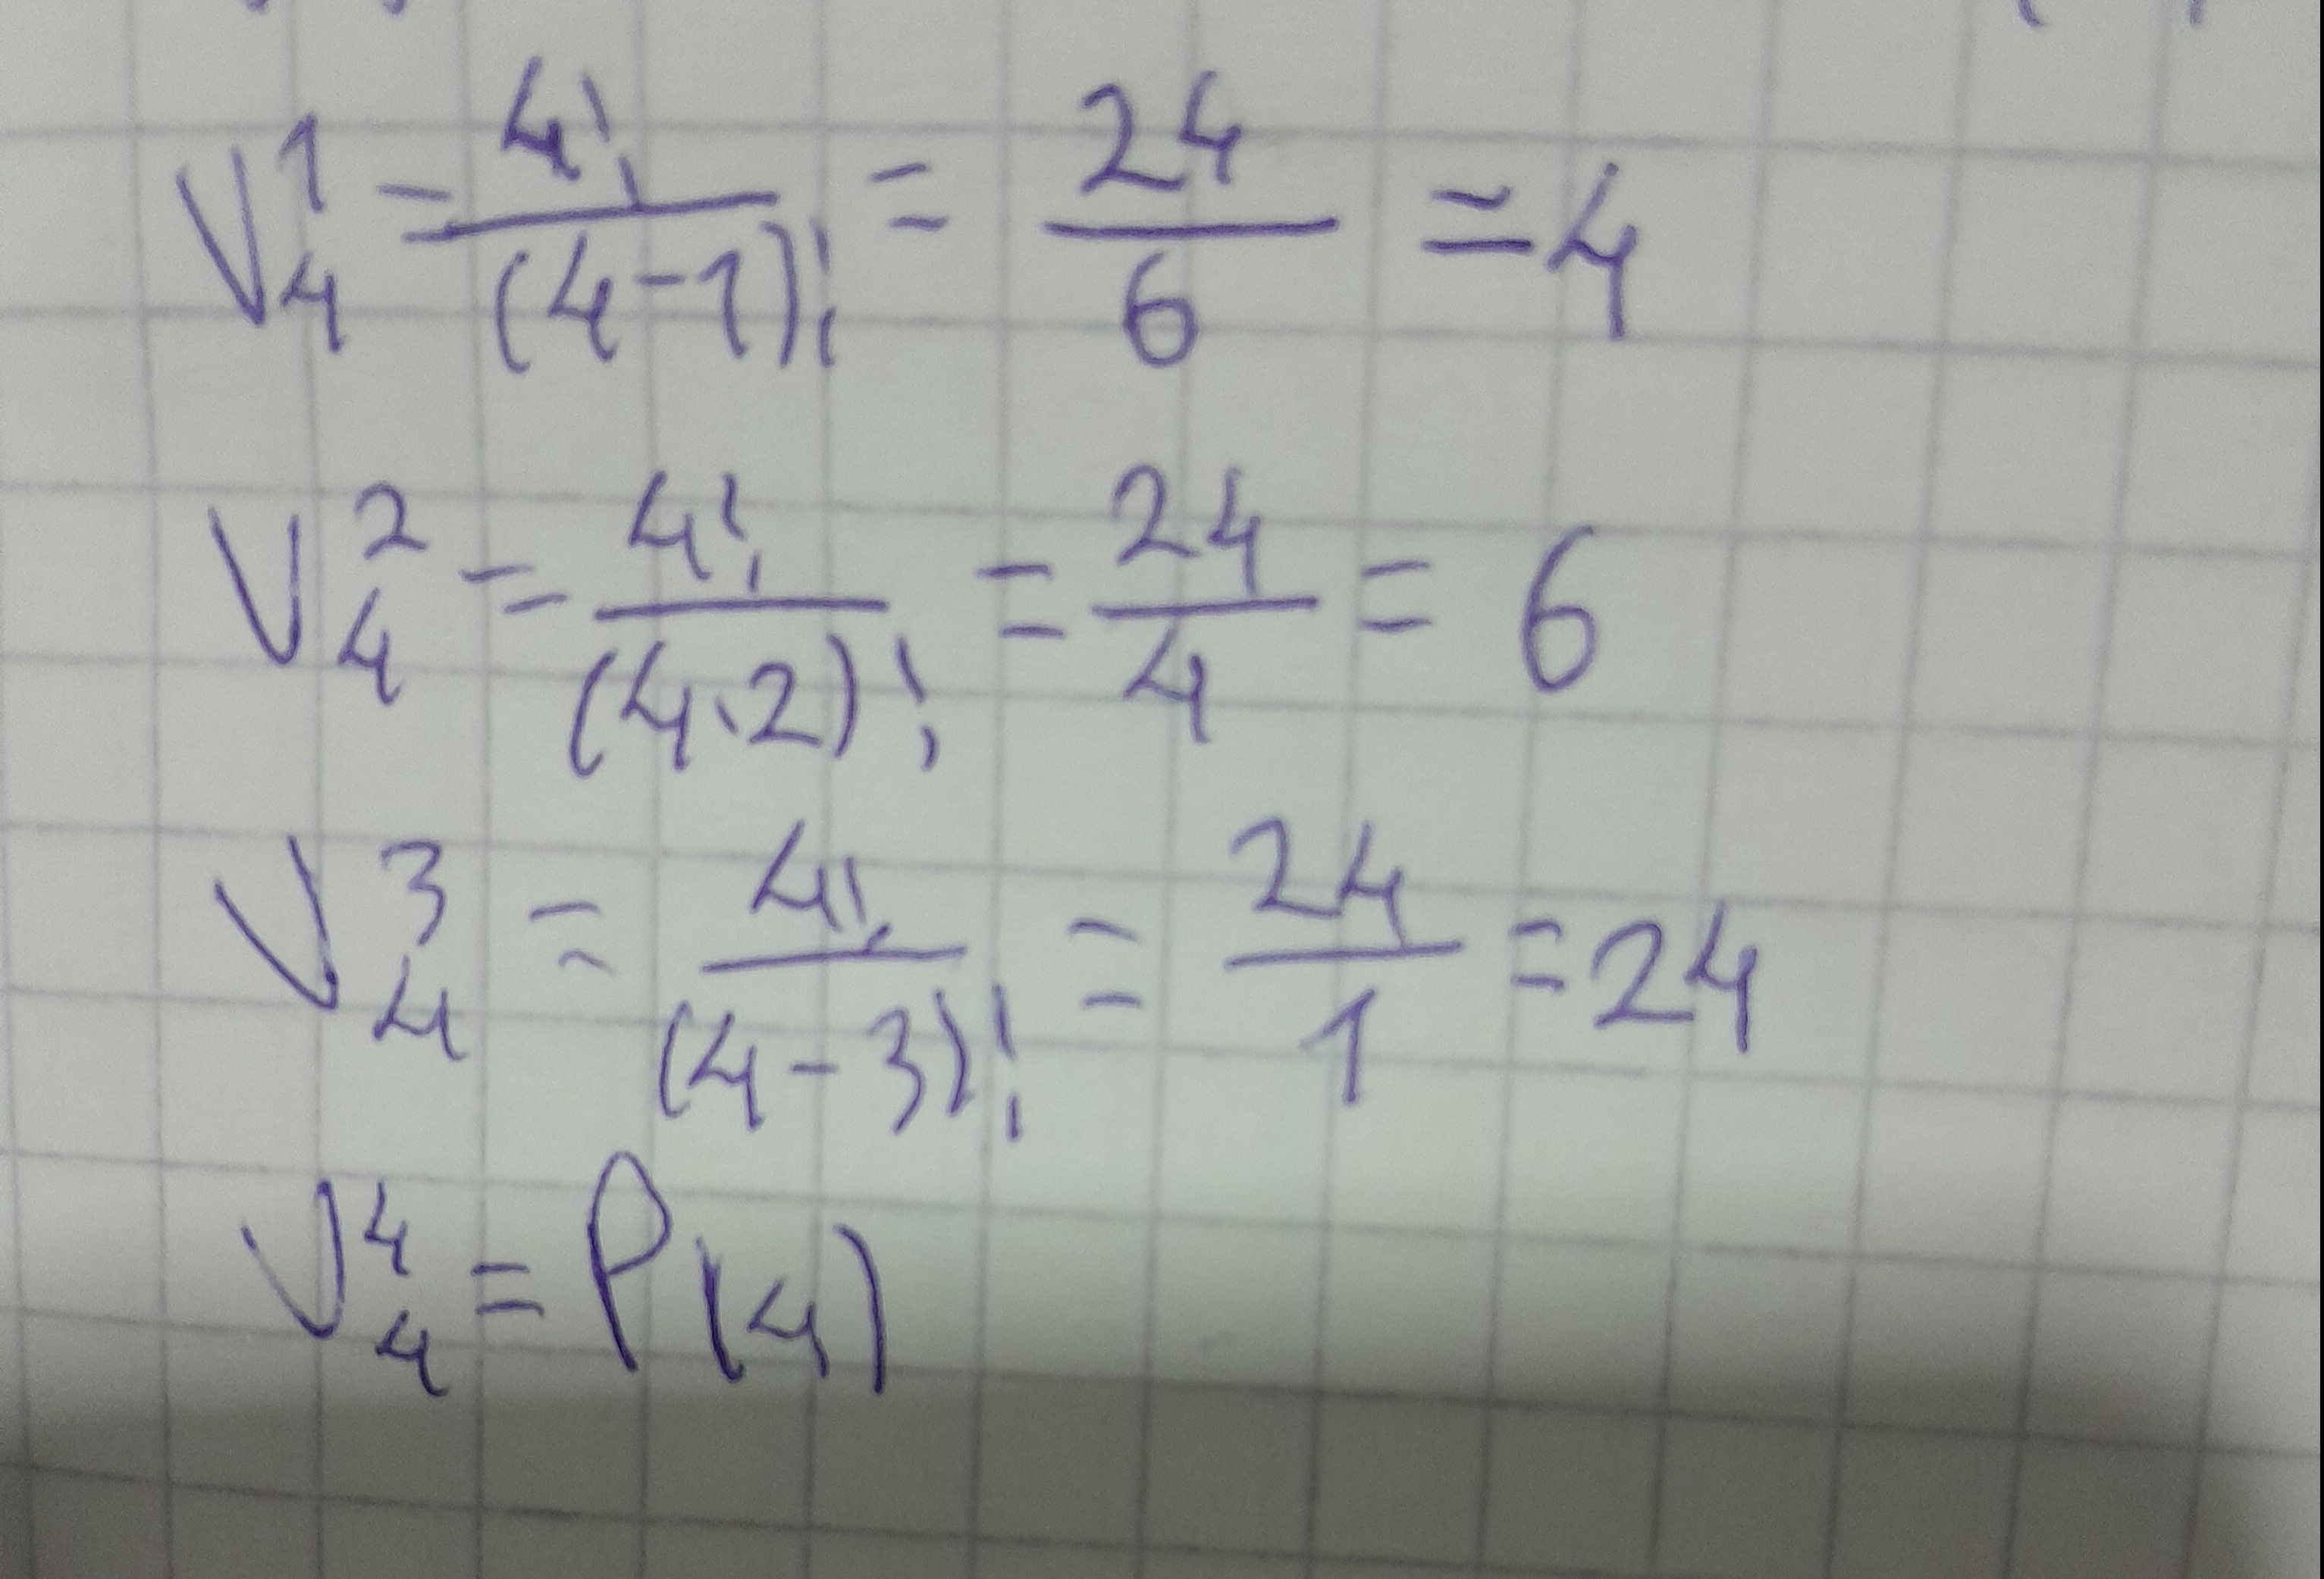 V₄¹ = 4! / (4-1)! = 24 / 6 = 4
V₄² = 4! / (4·2)! = 24 / 4 = 6
V₄³ = 4! / (4-3)! = 24 / 1 = 24
V₄⁴ = P(4)